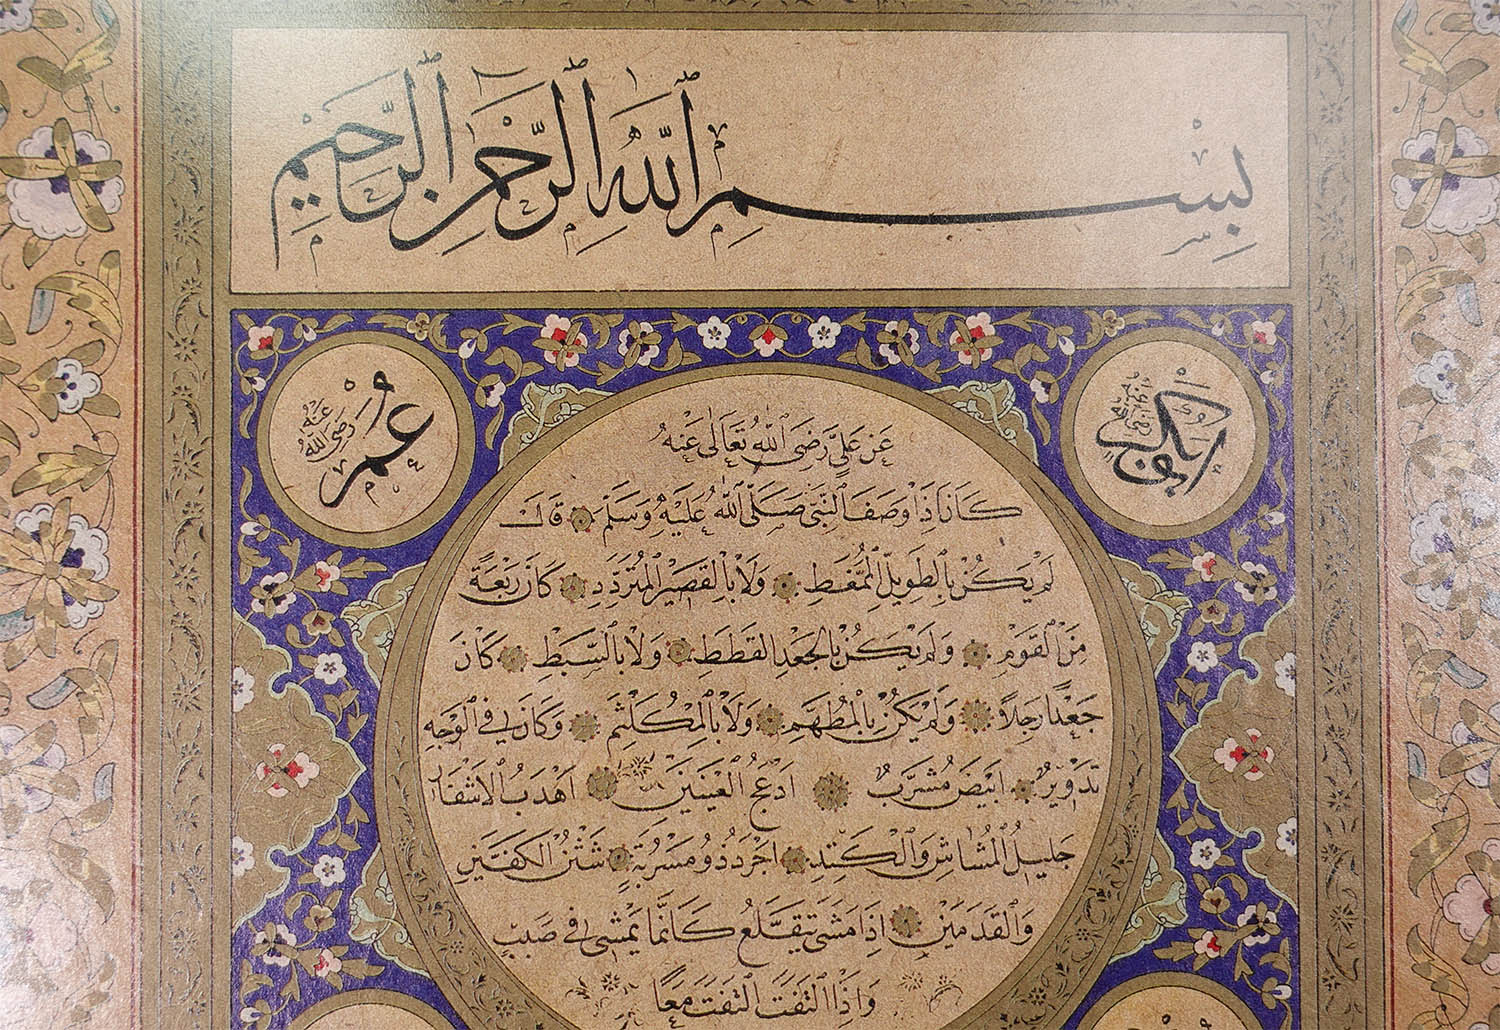 بِسْمِ ٱللّٰهِ ٱلرَّحْمٰنِ ٱلرَّحِيْمِ
ابو بكر رضى الله عنه
عُمَرْ رَضِىَ اللّٰهُ عَنْهُ
عَنْ عَلِىٍّ رَضِىَ ٱللّٰهُ تَعَالٰى عَنْهُ
كَانَ اِذَا وَصَفَ ٱلنَّبِىَّ صَلَّى ٱللّٰهُ عَلَيْهِ وَسَلَّمْ قَالَ
لَمْ يَكُنْ بِٱلطَّوِيْلِ ٱلْمُمَّغِطِ وَلَا بِٱلْقَصِيْرِ ٱلْمُتَرَدِّدِ كَانَ رَبْعَةً
مِنَ ٱلْقَوْمِ وَلَمْ يَكُنْ بِالْجَعْدِ القَطَطِ وَلَا بِالسَّبِطِ كَانَ
جَعْدًا رَجِلًا وَلَمْ يَكُنْ بِٱلْمُطَهَّمِ وَلَا بِٱلْمُكَلْثَمِ وَكَانَ فِى ٱلْوَجْهِ
تَدْوِيْرٌ اَبْيَضُ مُشْرَبٌ اَدْعَجُ الْعَيْنَيْنِ اَهْدَبُ الْاَشْفَارِ
جَلِيْلُ الْمُشَاشِ وَالْكَتَدِ اَجْرَدُ ذُو مَسْرُبَةٍ شَثْنُ الْكَفَّيْنِ
وَالْقَدَمَيْنِ اِذَا مَشٰى يَتَقَلَّعُ كَاَنَّمَا يَمْشِى فِى صَبَبٍ
وَاِذَا الْتَفَتَ الْتَفَتَ مَعًا